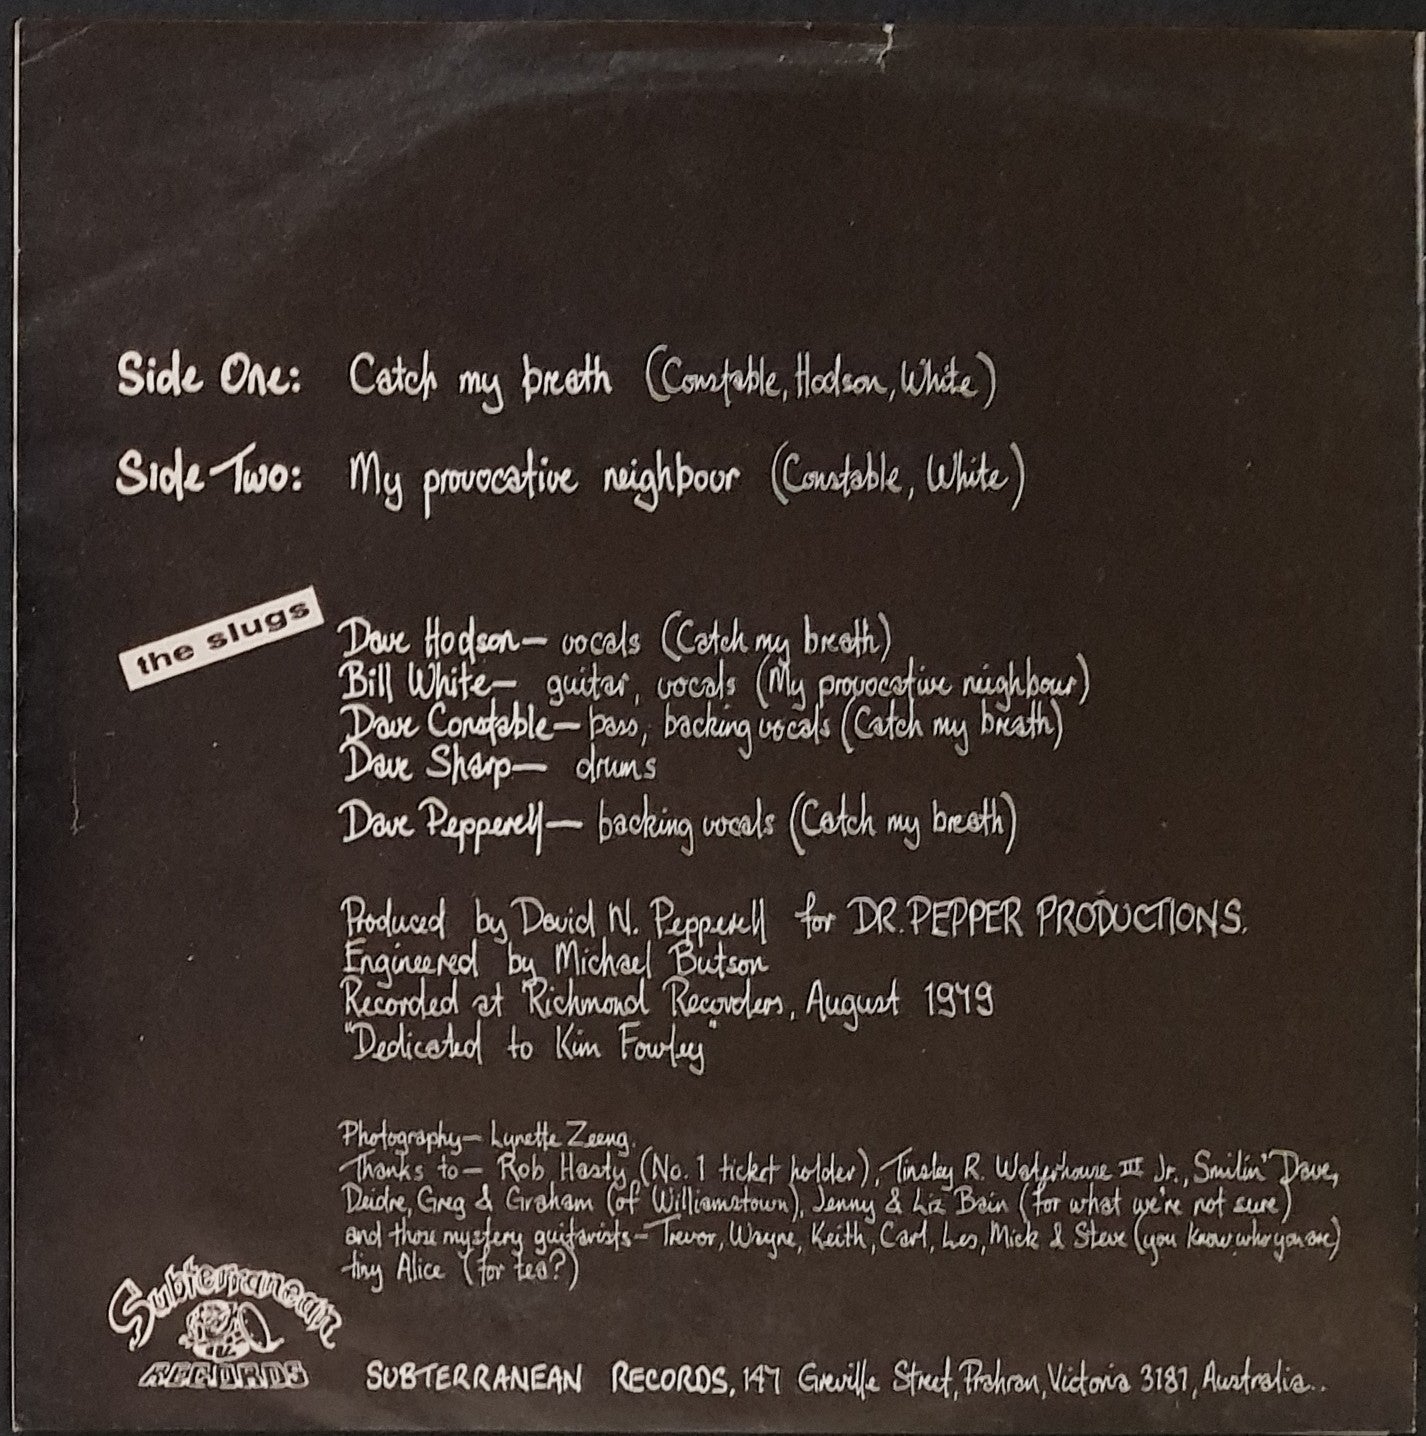 Side One: Catch my breath (Constable, Hodson, White)
Side Two: My provocative neighbour (Constable, White)
the slugs
Dave Hodson— vocals (Catch my breath)
Bill White— guitar, vocals (My provocative neighbour)
Dave Constable— bass, backing vocals (Catch my breath)
Dave Sharp— drums
Dave Pepperell— backing vocals (Catch my breath)
Produced by David N. Pepperell for DR. PEPPER PRODUCTIONS.
Engineered by Michael Butson
Recorded at Richmond Recorders, August 1979
"Dedicated to Kim Fowley"
Photography— Lynette Zeeng.
Thanks to— Rob Hasty (No. 1 ticket holder), Tinsley R. Waterhouse III Jr., Smilin' Dave,
Deidre, Greg & Graham (of Williamstown), Jenny & Liz Bain (for what we're not sure)
and those mystery guitarists— Trevor, Wayne, Keith, Carl, Les, Mick & Steve (you know who you are)
tiny Alice (for tea?)
Subterranean
RECORDS
SUBTERRANEAN RECORDS, 147 Greville Street, Prahran, Victoria 3181, Australia..